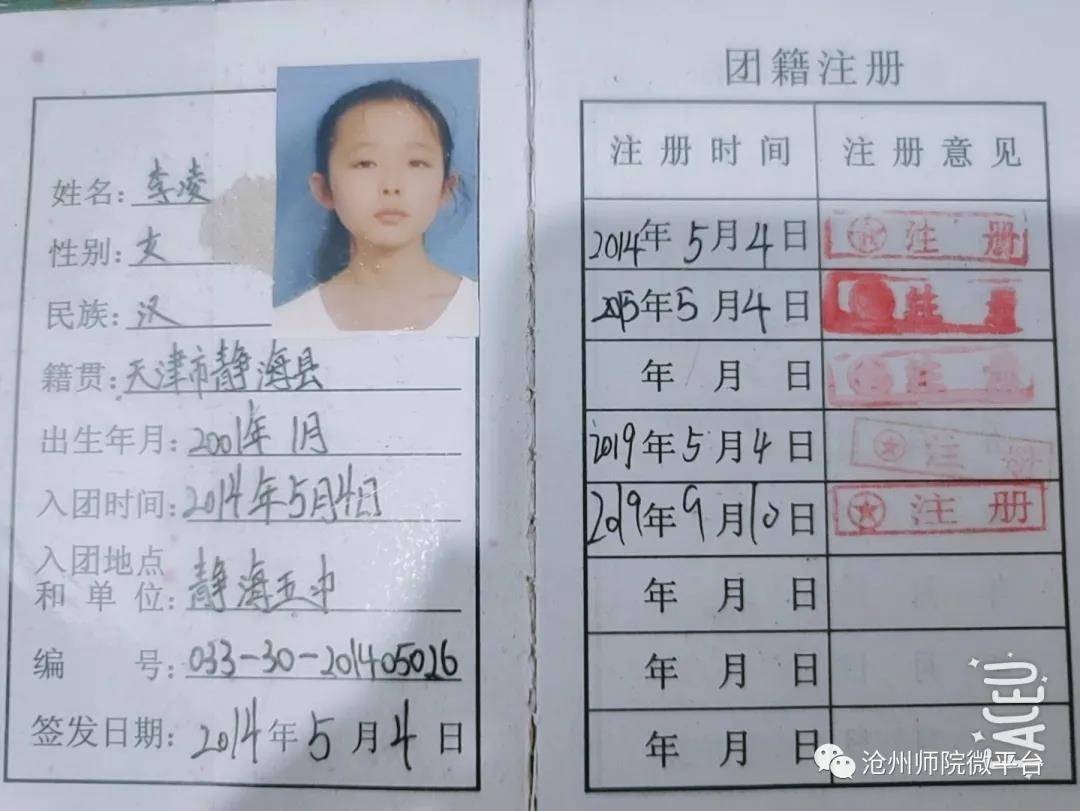 姓名：李凌
性别：女
民族：汉
籍贯：天津市静海县
出生年月：2001年1月
入团时间：2014年5月4日
入团地点
和单位：静海五中
编号：033-30-201405026
签发日期：2014年5月4日
团籍注册
注册时间 注册意见
2014年5月4日 注册
2015年5月4日 注册
年 月 日 注册
2019年5月4日 注册
2019年9月10日 注册
年 月 日
年 月 日
年 月 日
FACEU
沧州师院微平台